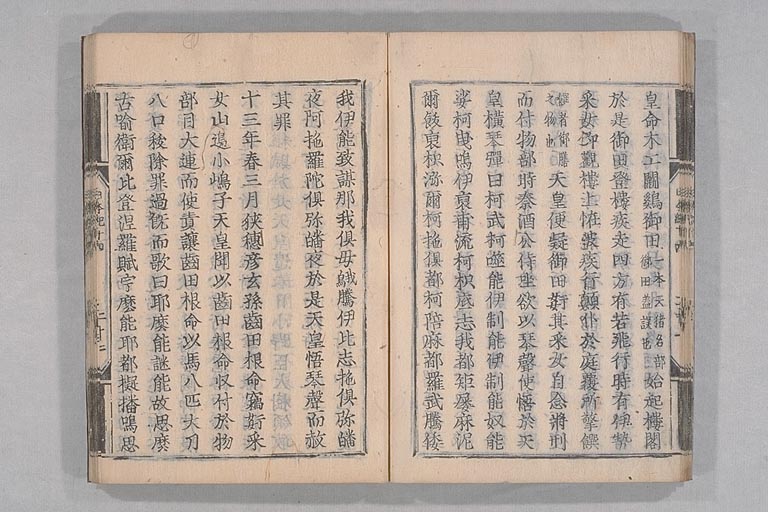 皇命木工鬪鷄御田一本云猪名部御田蓋誤也始起樓閣
於是御田登樓疾走四方有若飛行時有伊勢
采女仰觀樓上恠彼疾行顛仆於庭覆所擎饌
饌者御膳之物也天皇便疑御田姧其采女自念將刑
而付物部時秦酒公侍坐欲以琴聲使悟於天
皇橫琴彈曰柯武柯噬能伊制能伊制能奴能
娑柯曳嗚伊裒甫流柯枳底志我都矩屢麻泥
爾飫裒枳瀰爾柯拖俱都柯陪麻都羅武騰倭
我伊能致謀那我俱母鵝騰伊比志拖俱彌皤
夜阿拖羅陀俱彌皤夜於是天皇悟琴聲而赦
其罪
十三年春三月狹穗彥玄孫齒田根命竊姧采
女山邊小嶋子天皇聞以齒田根命收付於物
部目大連而使責讓齒田根命以馬八匹大刀
八口秡除罪過既而歌曰耶麼能謎能故思麼
古喻衛爾比登涅羅賦宇麼能耶都擬播嗚思